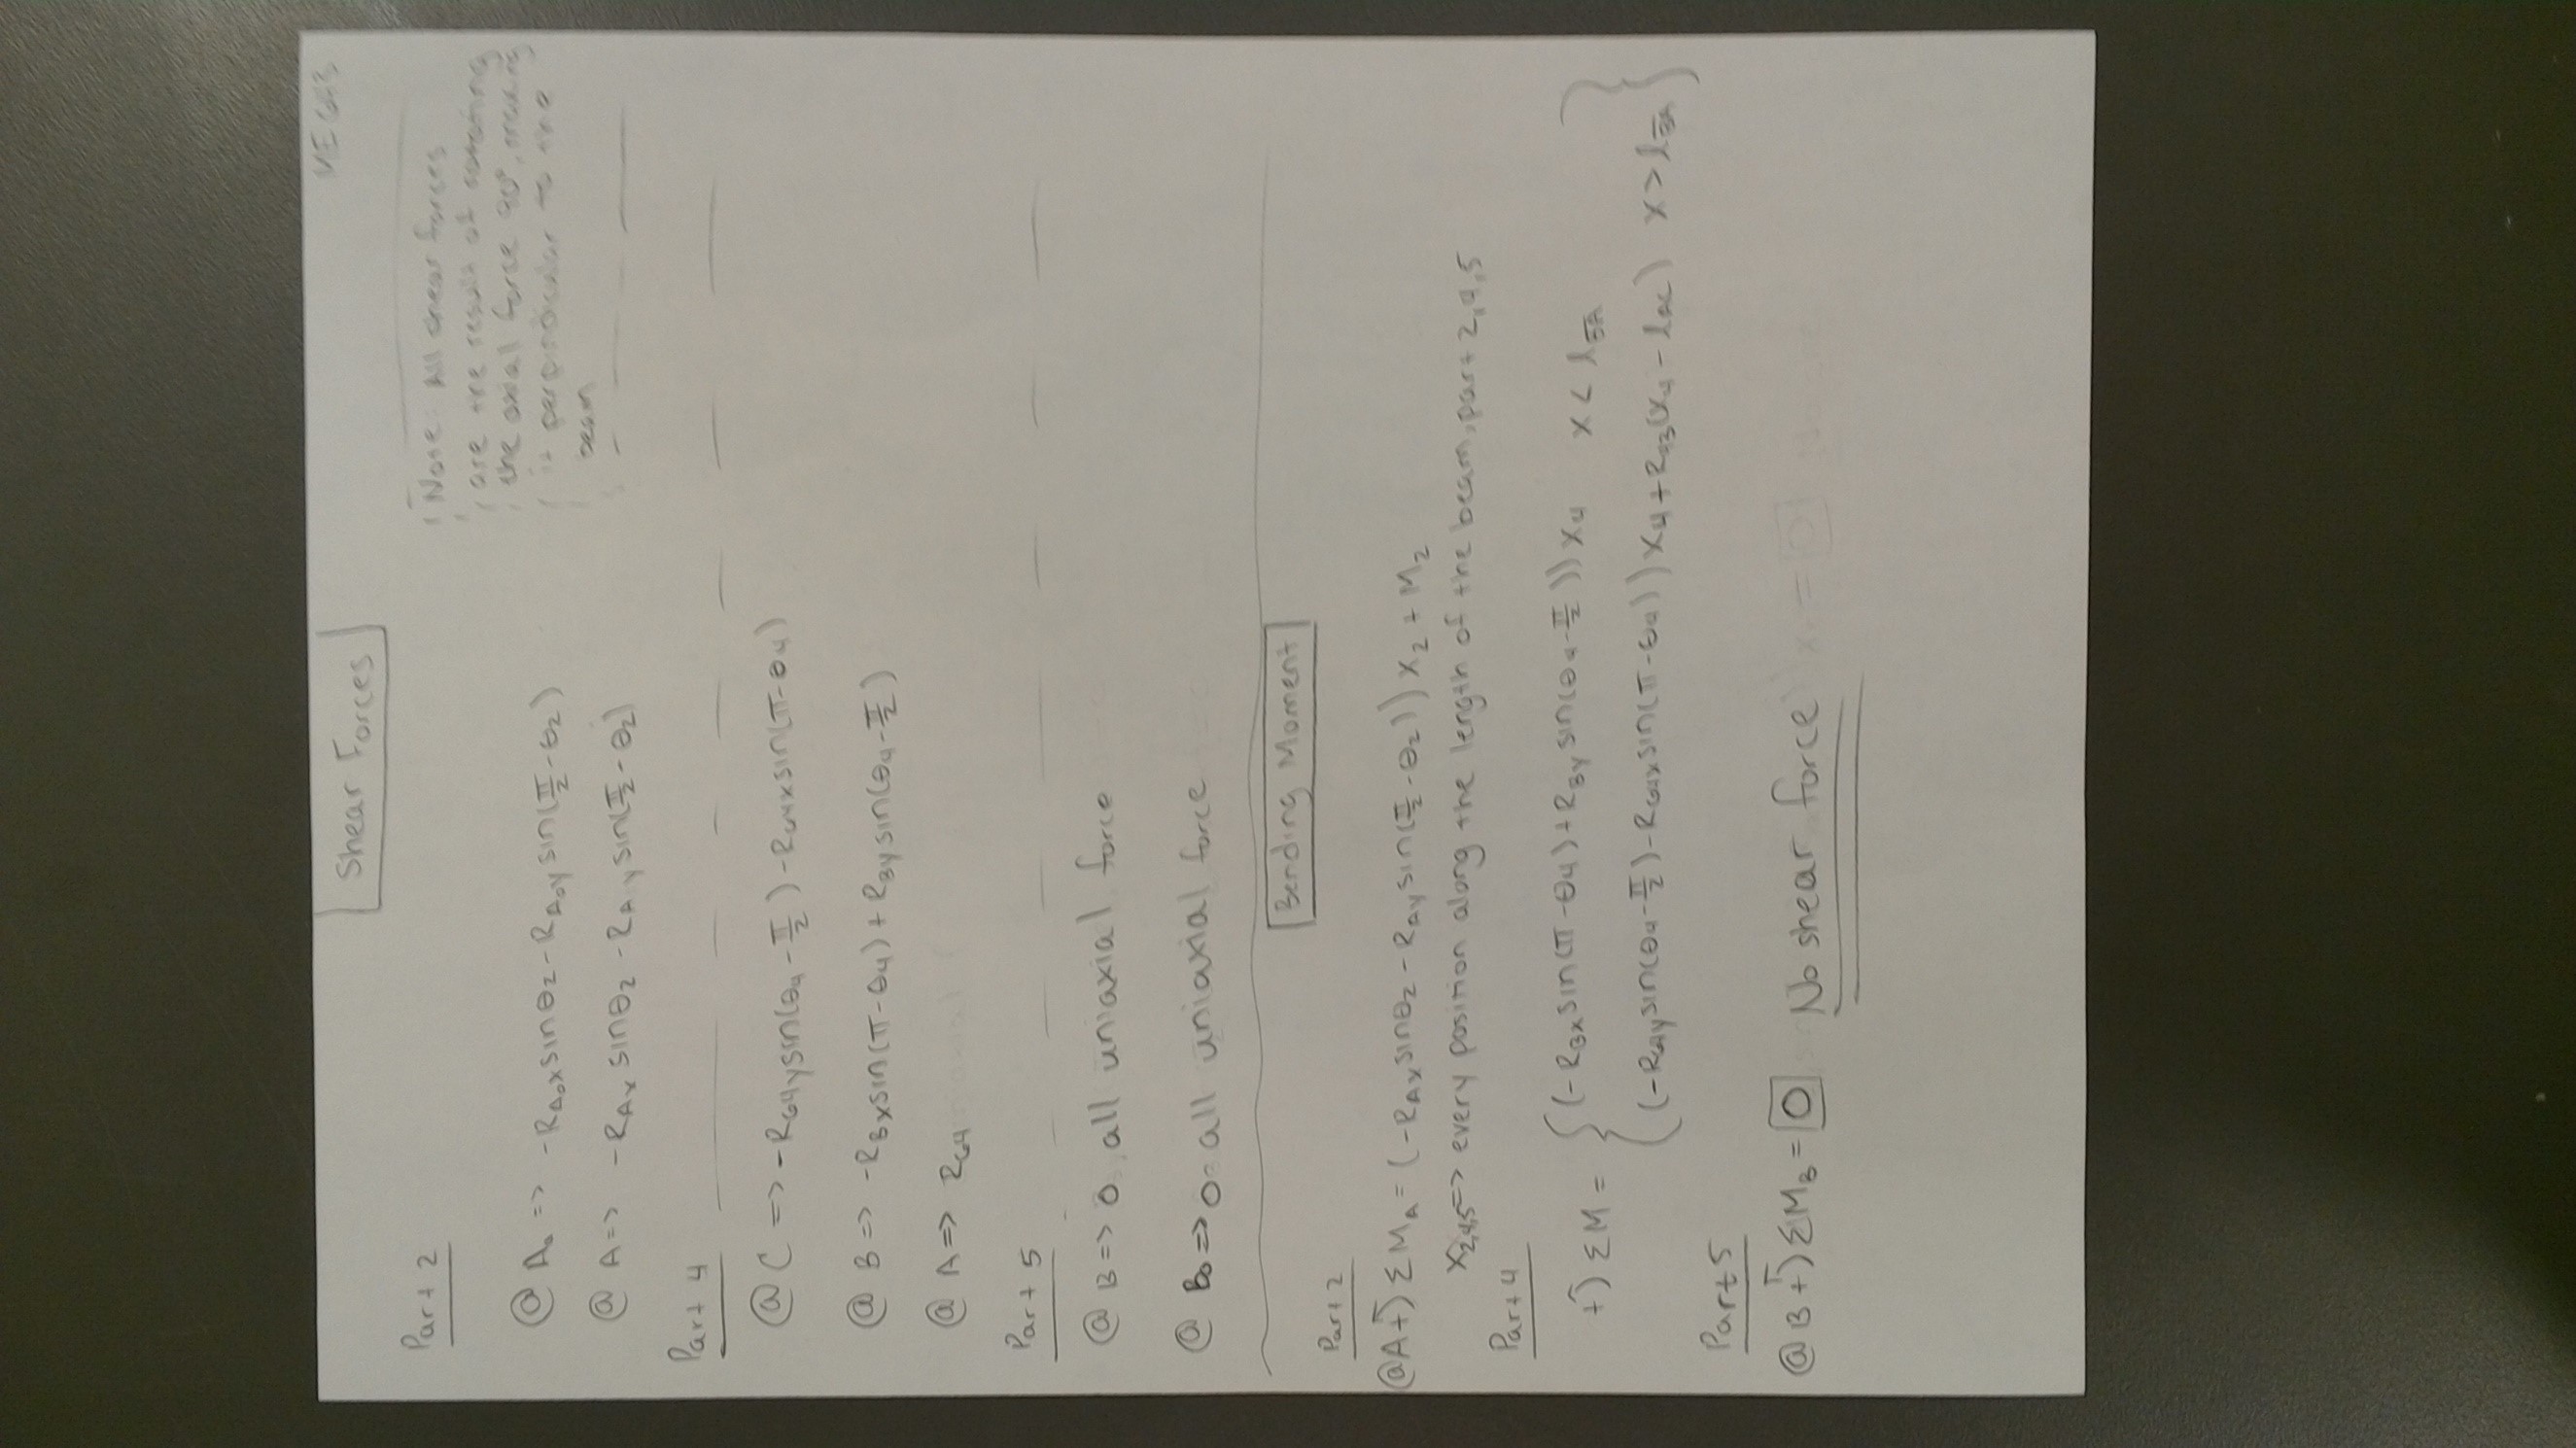 Shear Forces
Note: All shear forces
are the result of rotating
the axial force 90°, making
it perpindicular to the
beam
Part 2
@ A₀ => -R_A₀x sinθ₂ - R_A₀y sin(π/2 - θ₂)
@ A => -R_Ax sinθ₂ - R_Ay sin(π/2 - θ₂)
Part 4
@ C => -R_G4y sin(θ₄ - π/2) - R_G4x sin(π - θ₄)
@ B => -R_Bx sin(π - θ₄) + R_By sin(θ₄ - π/2)
@ A => R_G4
Part 5
@ B => 0 all uniaxial force
@ B₀ => 0 all uniaxial force
Bending Moment
Part 2
@A +) ΣM_A = (-R_Ax sinθ₂ - R_Ay sin(π/2 - θ₂)) x₂ + M₂
x₂,₄,₅ => every position along the length of the beam, part 2,4,5
Part 4
+) ΣM = { (-R_Bx sin(π - θ₄) + R_By sin(θ₄ - π/2)) x₄ x < l_BA }
{ (-R_G4y sin(θ₄ - π/2) - R_G4x sin(π - θ₄)) x₄ + R_23(x₄ - l_AC) x > l_BA }
Part 5
@ B +) ΣM_B = 0 No shear force